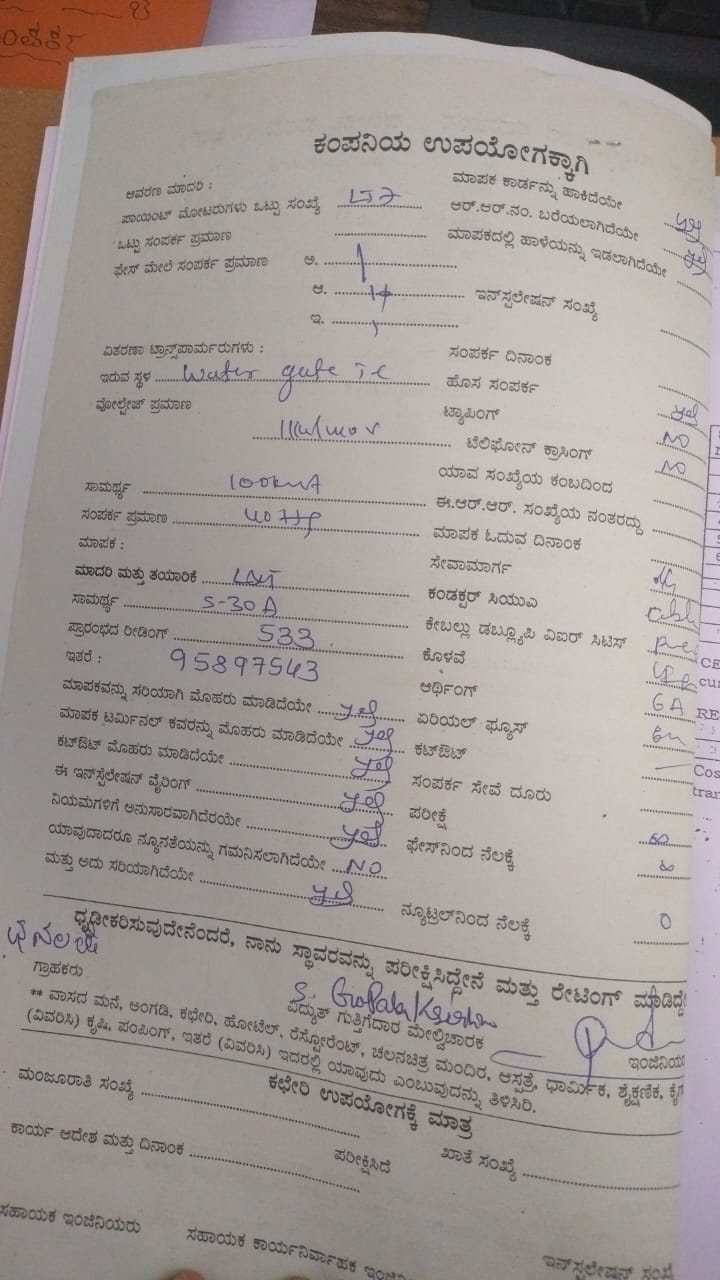 ಕಂಪನಿಯ ಉಪಯೋಗಕ್ಕಾಗಿ
ಆವರಣ ಮಾದರಿ :
ಮಾಪಕ ಕಾರ್ಡನ್ನು ಹಾಕಿದೆಯೇ yes
ಪಾಯಿಂಟ್ ಮೋಟರುಗಳು ಒಟ್ಟು ಸಂಖ್ಯೆ
ಆರ್.ಆರ್.ನಂ. ಬರೆಯಲಾಗಿದೆಯೇ yes
ಒಟ್ಟು ಸಂಪರ್ಕ ಪ್ರಮಾಣ
ಮಾಪಕದಲ್ಲಿ ಹಾಳೆಯನ್ನು ಇಡಲಾಗಿದೆಯೇ
ಫೇಸ್ ಮೇಲೆ ಸಂಪರ್ಕ ಪ್ರಮಾಣ ಅ.
ಆ. ಇನ್‌ಸ್ಪಲೇಷನ್ ಸಂಖ್ಯೆ
ಇ.
ವಿತರಣಾ ಟ್ರಾನ್ಸ್‌ಪಾರ್ಮರುಗಳು :
ಸಂಪರ್ಕ ದಿನಾಂಕ
ಇರುವ ಸ್ಥಳ Water gate
ಹೊಸ ಸಂಪರ್ಕ yes
ವೋಲ್ಟೇಜ್ ಪ್ರಮಾಣ
ಟ್ಯಾಪಿಂಗ್ NO
ಟೆಲಿಫೋನ್ ಕ್ರಾಸಿಂಗ್ NO
ಯಾವ ಸಂಖ್ಯೆಯ ಕಂಬದಿಂದ
ಸಾಮರ್ಥ್ಯ 100kVA
ಈ.ಆರ್.ಆರ್. ಸಂಖ್ಯೆಯ ನಂತರದ್ದು
ಸಂಪರ್ಕ ಪ್ರಮಾಣ 40 HP
ಮಾಪಕ ಓದುವ ದಿನಾಂಕ
ಮಾಪಕ :
ಸೇವಾಮಾರ್ಗ
ಮಾದರಿ ಮತ್ತು ತಯಾರಿಕೆ L&T
ಕಂಡಕ್ಟರ್ ಸಿಯುಎ
ಸಾಮರ್ಥ್ಯ 5-30A
ಕೇಬಲ್ಲು ಡಬ್ಲ್ಯೂಪಿ ವಿಐರ್ ಸಿಟಿಸ್
ಪ್ರಾರಂಭದ ರೀಡಿಂಗ್ 533
ಕೊಳವೆ
ಇತರೆ : 95897543
ಆರ್ಥಿಂಗ್
ಮಾಪಕವನ್ನು ಸರಿಯಾಗಿ ಮೊಹರು ಮಾಡಿದೆಯೇ yes
ಏರಿಯಲ್ ಫ್ಯೂಸ್ 6A
ಮಾಪಕ ಟರ್ಮಿನಲ್ ಕವರನ್ನು ಮೊಹರು ಮಾಡಿದೆಯೇ yes
ಕಟ್‌ಔಟ್
ಕಟ್‌ಔಟ್ ಮೊಹರು ಮಾಡಿದೆಯೇ yes
ಸಂಪರ್ಕ ಸೇವೆ ದೂರು
ಈ ಇನ್‌ಸ್ಪೆಲೇಷನ್ ವೈರಿಂಗ್ yes
ಪರೀಕ್ಷೆ
ನಿಯಮಗಳಿಗೆ ಅನುಸಾರವಾಗಿದೆರಯೇ yes
ಫೇಸ್‌ನಿಂದ ನೆಲಕ್ಕೆ
ಯಾವುದಾದರೂ ನ್ಯೂನತೆಯನ್ನು ಗಮನಿಸಲಾಗಿದೆಯೇ NO
ಮತ್ತು ಅದು ಸರಿಯಾಗಿದೆಯೇ yes
ನ್ಯೂಟ್ರಲ್‌ನಿಂದ ನೆಲಕ್ಕೆ 0
ಧೃಡೀಕರಿಸುವುದೇನೆಂದರೆ, ನಾನು ಸ್ಥಾವರವನ್ನು ಪರೀಕ್ಷಿಸಿದ್ದೇನೆ ಮತ್ತು ರೇಟಿಂಗ್ ಮಾಡಿದ್ದೇ
ಗ್ರಾಹಕರು
ವಿದ್ಯುತ್ ಗುತ್ತಿಗೆದಾರ ಮೇಲ್ವಿಚಾರಕ
ಇಂಜಿನಿಯ
** ವಾಸದ ಮನೆ, ಅಂಗಡಿ, ಕಛೇರಿ, ಹೋಟೆಲ್, ರೆಸ್ಟೋರೆಂಟ್, ಚಲನಚಿತ್ರ ಮಂದಿರ, ಆಸ್ಪತ್ರೆ, ಧಾರ್ಮಿಕ, ಶೈಕ್ಷಣಿಕ, ಕೈಗ
(ವಿವರಿಸಿ) ಕೃಷಿ, ಪಂಪಿಂಗ್, ಇತರೆ (ವಿವರಿಸಿ) ಇದರಲ್ಲಿ ಯಾವುದು ಎಂಬುವುದನ್ನು ತಿಳಿಸಿರಿ.
ಕಛೇರಿ ಉಪಯೋಗಕ್ಕೆ ಮಾತ್ರ
ಮಂಜೂರಾತಿ ಸಂಖ್ಯೆ
ಖಾತೆ ಸಂಖ್ಯೆ
ಕಾರ್ಯ ಆದೇಶ ಮತ್ತು ದಿನಾಂಕ
ಪರೀಕ್ಷಿಸಿದೆ
ಸಹಾಯಕ ಇಂಜಿನಿಯರು
ಸಹಾಯಕ ಕಾರ್ಯನಿರ್ವಾಹಕ
ಇನ್‌ಸ್ಪಲೇಷನ್